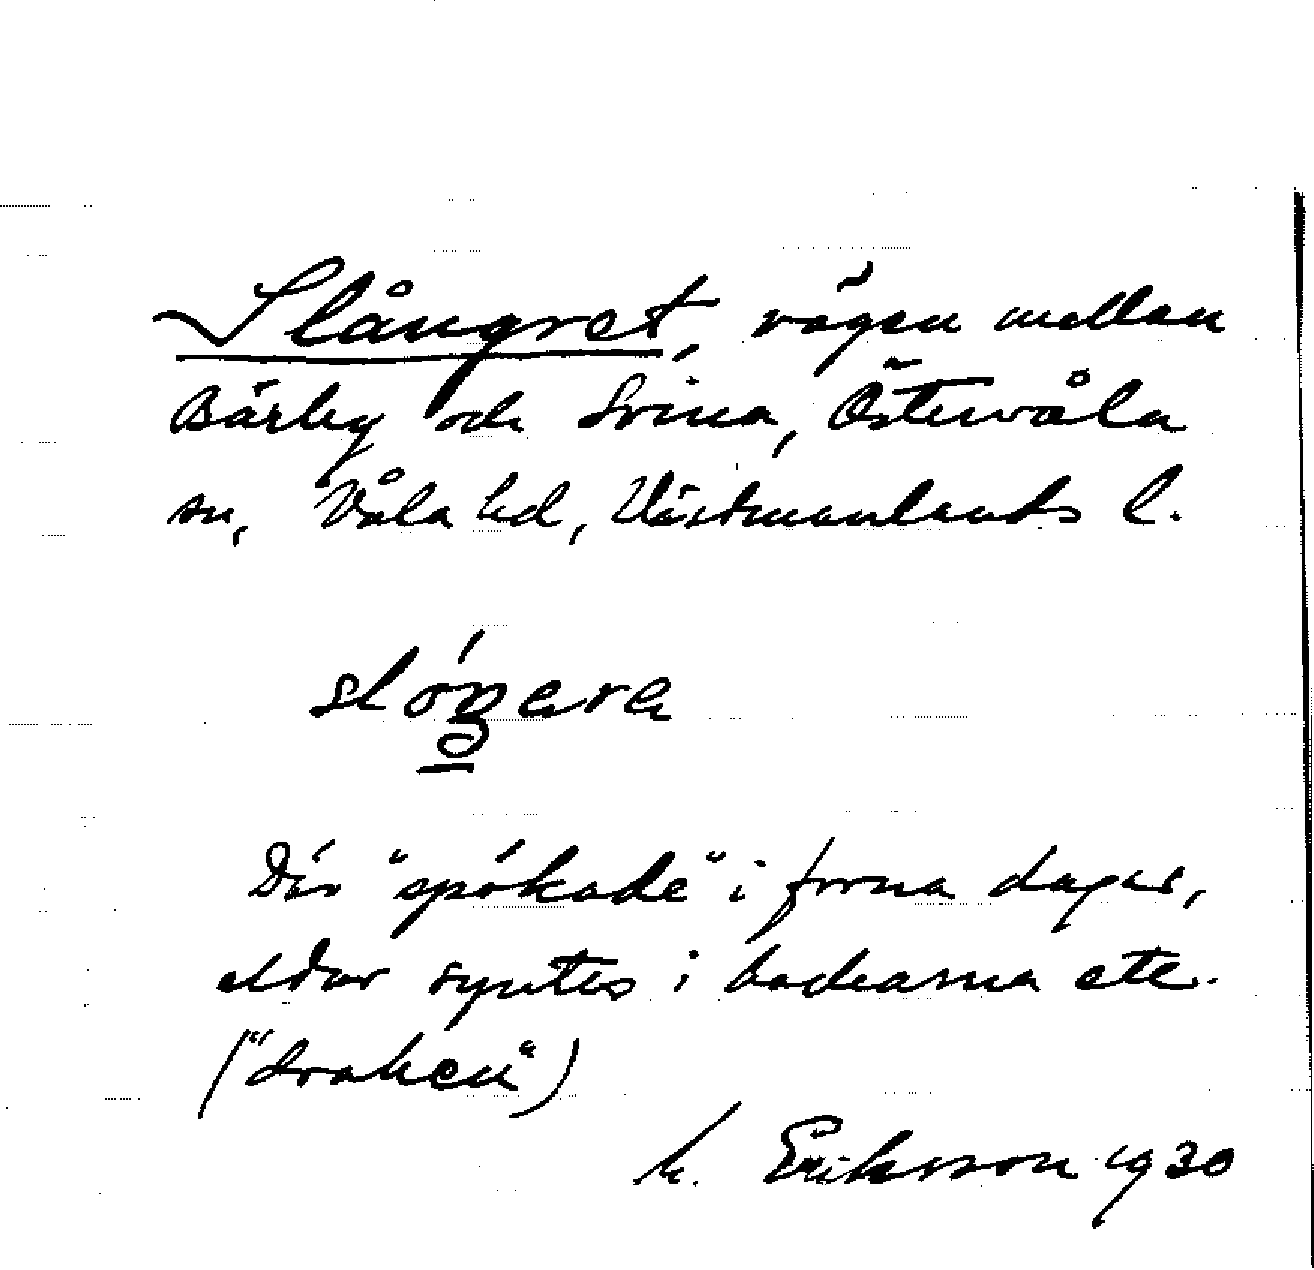 ~Slångret, vägen mellan
Bärby och Svina, Östervåla
sn, Våla hd, Västmanlands l.
slóŋara
Där "spökade" i forna dagar,
eldar syntes i backarna etc.
("draken")
M. Eriksson 1930